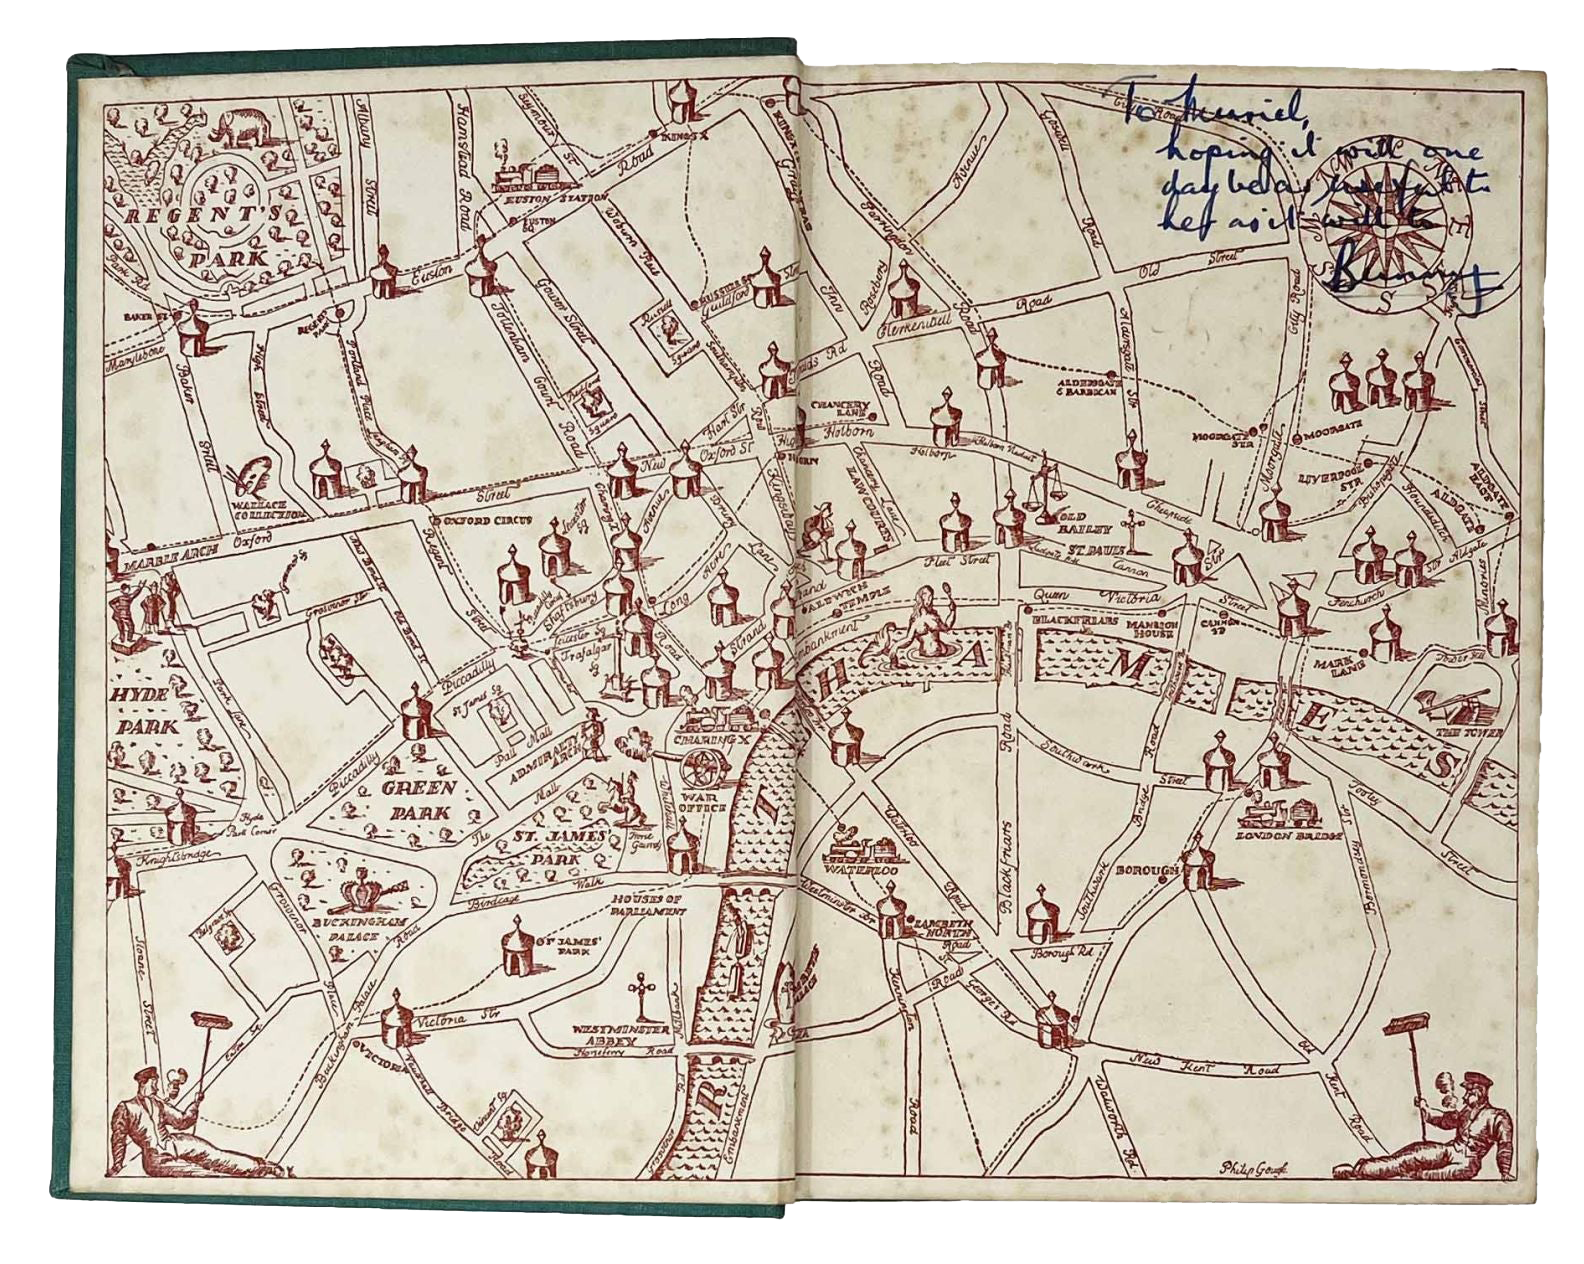 To Muriel,
hoping it will one
day be as useful to
her as it will to
Bunny
REGENT'S
PARK
Albany
Street
Hampstead Road
Seymour
St
Road
KINGS X
EUSTON STATION
EUSTON
SQ
Woburn Place
Euston
Park Rd
BAKER ST
Marylebone
Baker
Street
High
Street
Portland Place
Tottenham
Court
Road
Gower Street
Russell
Square
Guildford
Bedford
Square
Hart Str
New
Oxford St
WALLACE
COLLECTION
Street
OXFORD CIRCUS
MARBLE ARCH
Oxford
Grosvenor Str
New Bond St
Old Bond St
Regent
Street
Shaftesbury
Avenue
Long
Acre
Drury
Lane
Kingsway
Leicester Sq
Trafalgar
Sq
Strand
Piccadilly
St James Sq
Pall Mall
ADMIRALTY
ARCH
CHARING X
WAR
OFFICE
Whitehall
HYDE
PARK
Park Lane
Piccadilly
GREEN
PARK
The
Mall
ST. JAMES'
PARK
Horse
Guards
Hyde
Park Corner
Knightsbridge
Grosvenor
Place
BUCKINGHAM
PALACE
Birdcage
Walk
HOUSES OF
PARLIAMENT
ST JAMES'
PARK
WESTMINSTER
ABBEY
Sloane
Street
Buckingham Palace
Road
Victoria Str
VICTORIA
Vauxhall
Bridge
Road
Horseferry Road
Millbank
Embankment
Farringdon
Road
Avenue
Goswell
Road
City Road
Rosebery
Clerkenwell
Road
Old
Street
Inn
Road
CHANCERY
LANE
Holborn
Holborn
Holborn Viaduct
ALDERSGATE
& BARBICAN
Aldersgate
Str
MOORGATE
STR
MOORGATE
Moorgate
City Road
LIVERPOOL
STR
Bishopsgate
Houndsditch
ALDGATE
EAST
ALDGATE
Commercial Street
Chancery Lane
LAW COURTS
Fleet Street
OLD
BAILEY
ST. PAULS
Ludgate Hill
Cheapside
Cannon
Str
Queen Victoria Street
Aldgate
Fenchurch
Str
Minories
ALDWYCH
TEMPLE
Embankment
BLACKFRIARS
MANSION
HOUSE
CANNON
ST
MARK
LANE
Tower Hill
THE TOWER
R I H A M E S
Southwark
Street
Bridge
Road
Tooley
Street
LONDON BRIDGE
BOROUGH
Southwark
Blackfriars
Road
Waterloo
Road
WATERLOO
Westminster Br
LAMBETH
NORTH
Road
Borough Rd
Bermondsey
Str
Kennington
Road
Georges Rd
New Kent Road
Old
Kent
Road
Walworth
Rd
Philip Gough